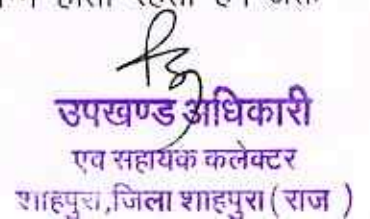 उपखण्ड अधिकारी
एव सहायक कलेक्टर
शाहपुरा,जिला शाहपुरा ( राज )